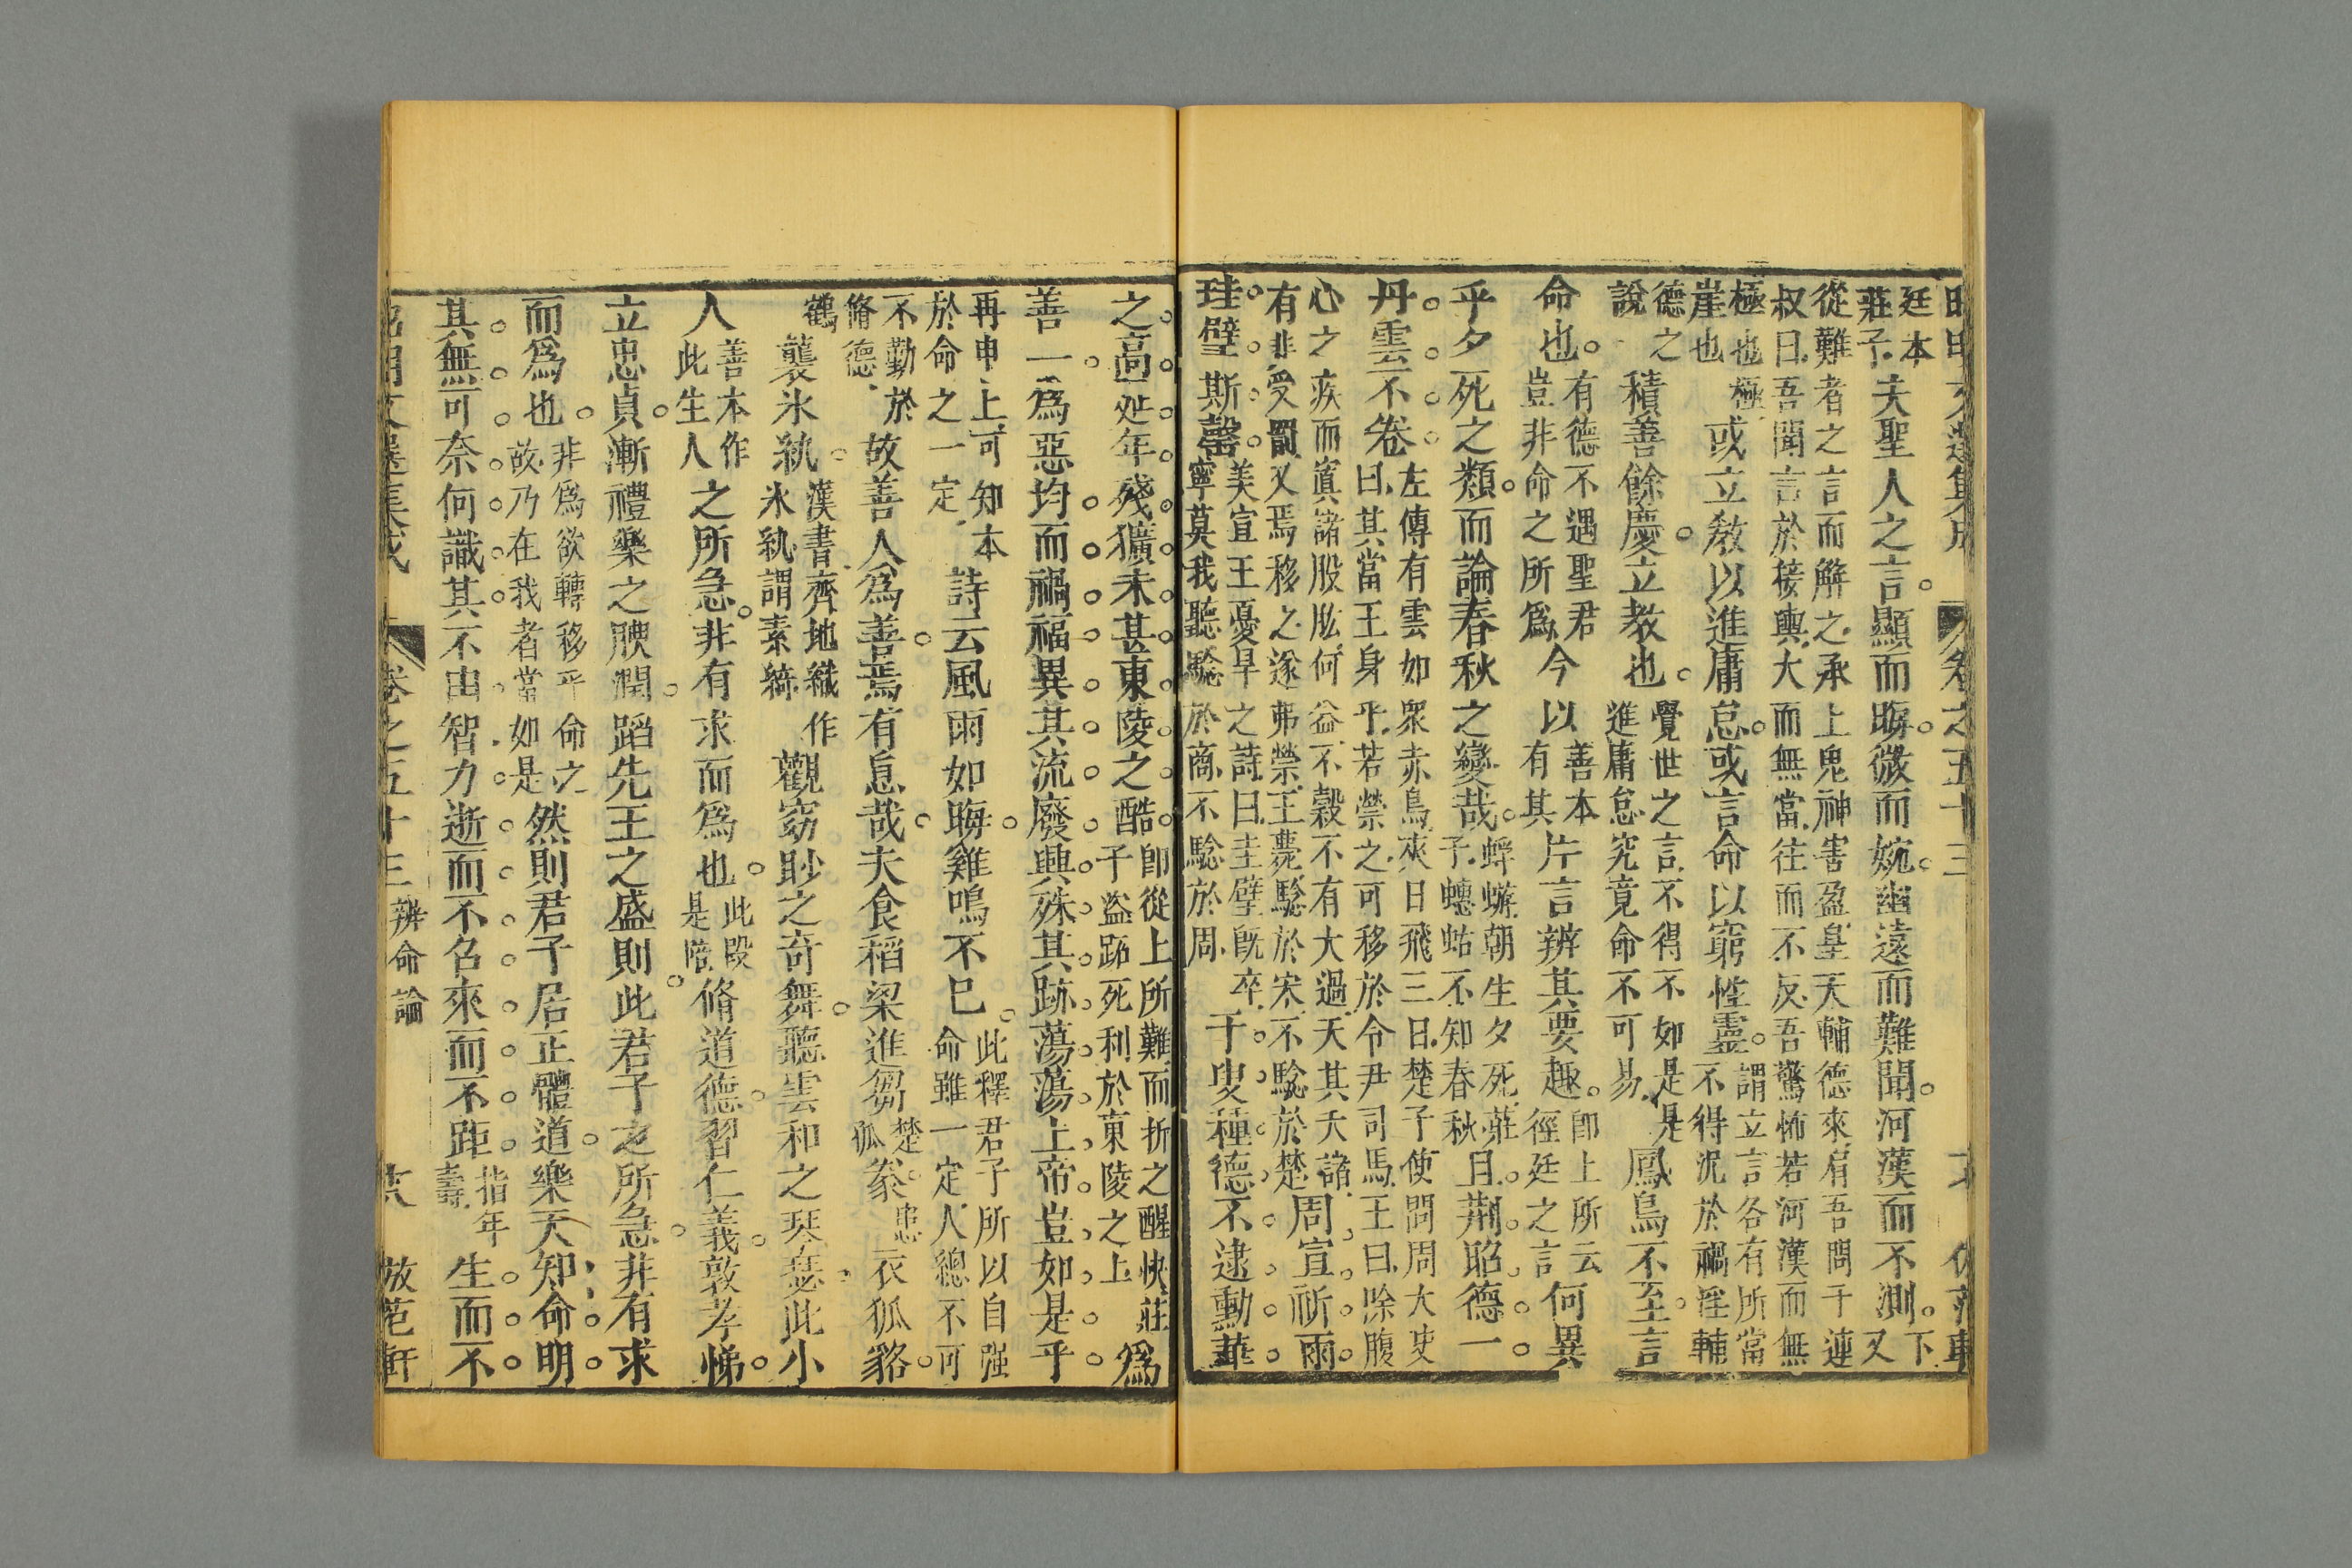 昭明文選集成 卷之五十三
廷本莊子夫聖人之言。顯而晦。微而婉。幽遠而難聞。河漢而不測。下又
從難者之言而解之承上鬼神害盈皇天輔德來肩吾問于連
叔曰吾聞言於接輿大而無當往而不反吾驚怖若河漢而無
極也極崖也或立教以進庸怠。或言命以窮性靈。謂立言各有所當不得泥於禍淫輔
德之說積善餘慶。立教也。覺世之言不得不如是是進庸怠究竟命不可易鳳鳥不至。言
命也。有德不遇聖君豈非命之所爲今以善本有其片言辨其要趣。即上所云徑廷之言何異
乎夕死之類。而論春秋之變哉。蜉蝣朝生夕死莊子蟪蛄不知春秋且荆昭德一。
丹雲不卷。左傳有雲如眾赤鳥夾日飛三日楚子使問周大史曰其當王身乎若禜之可移於令尹司馬王曰除腹
心之疾而寘諸股肱何益不榖不有大過天其夭諸有非受罰又焉移之遂弗禜王薨騐於宋不騐於楚周宣祈雨。
珪璧斯罄。美宣王憂旱之詩曰圭璧既卒寧莫我聽騐於商不騐於周于叟種德。不逮勳華
之高。延年殘獷。未甚東陵之酷。即從上所難而折之醒快莊子盜跖死利於東陵之上爲
善一。爲惡均。而禍福異其流。廢興殊其跡。蕩蕩上帝。豈如是乎。
再申上可知本於命之一定詩云風雨如晦。雞鳴不已。此釋君子所以自强命雖一定人總不可
不勤於脩德故善人爲善。焉有息哉。夫食稻梁進芻豢。楚狐患衣狐貉。
鶴襲氷紈。漢書齊地織作氷紈謂素綺觀窈眇之奇舞。聽雲和之琴瑟。此小
人善本作此生人之所急。非有求而爲也。此段是陪脩道德。習仁義。敦孝悌。
立忠貞。漸禮樂之腴潤。蹈先王之盛則。此君子之所急。非有求
而爲也。非爲欲轉移乎命之故乃在我者當如是然則君子居正體道。樂天知命。明
其無可奈何。識其不由智力。逝而不召。來而不距。指年壽生而不
昭明文選集成 卷之五十三 辨命論 倣范軒